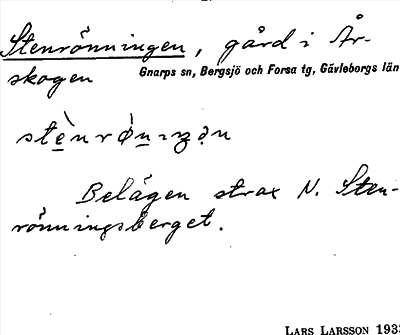 Stenrönningen, gård i År-
skogen Gnarps sn, Bergsjö och Forsa tg, Gävleborgs län
Belägen strax N. Sten-
rönningsberget.
LARS LARSSON 193